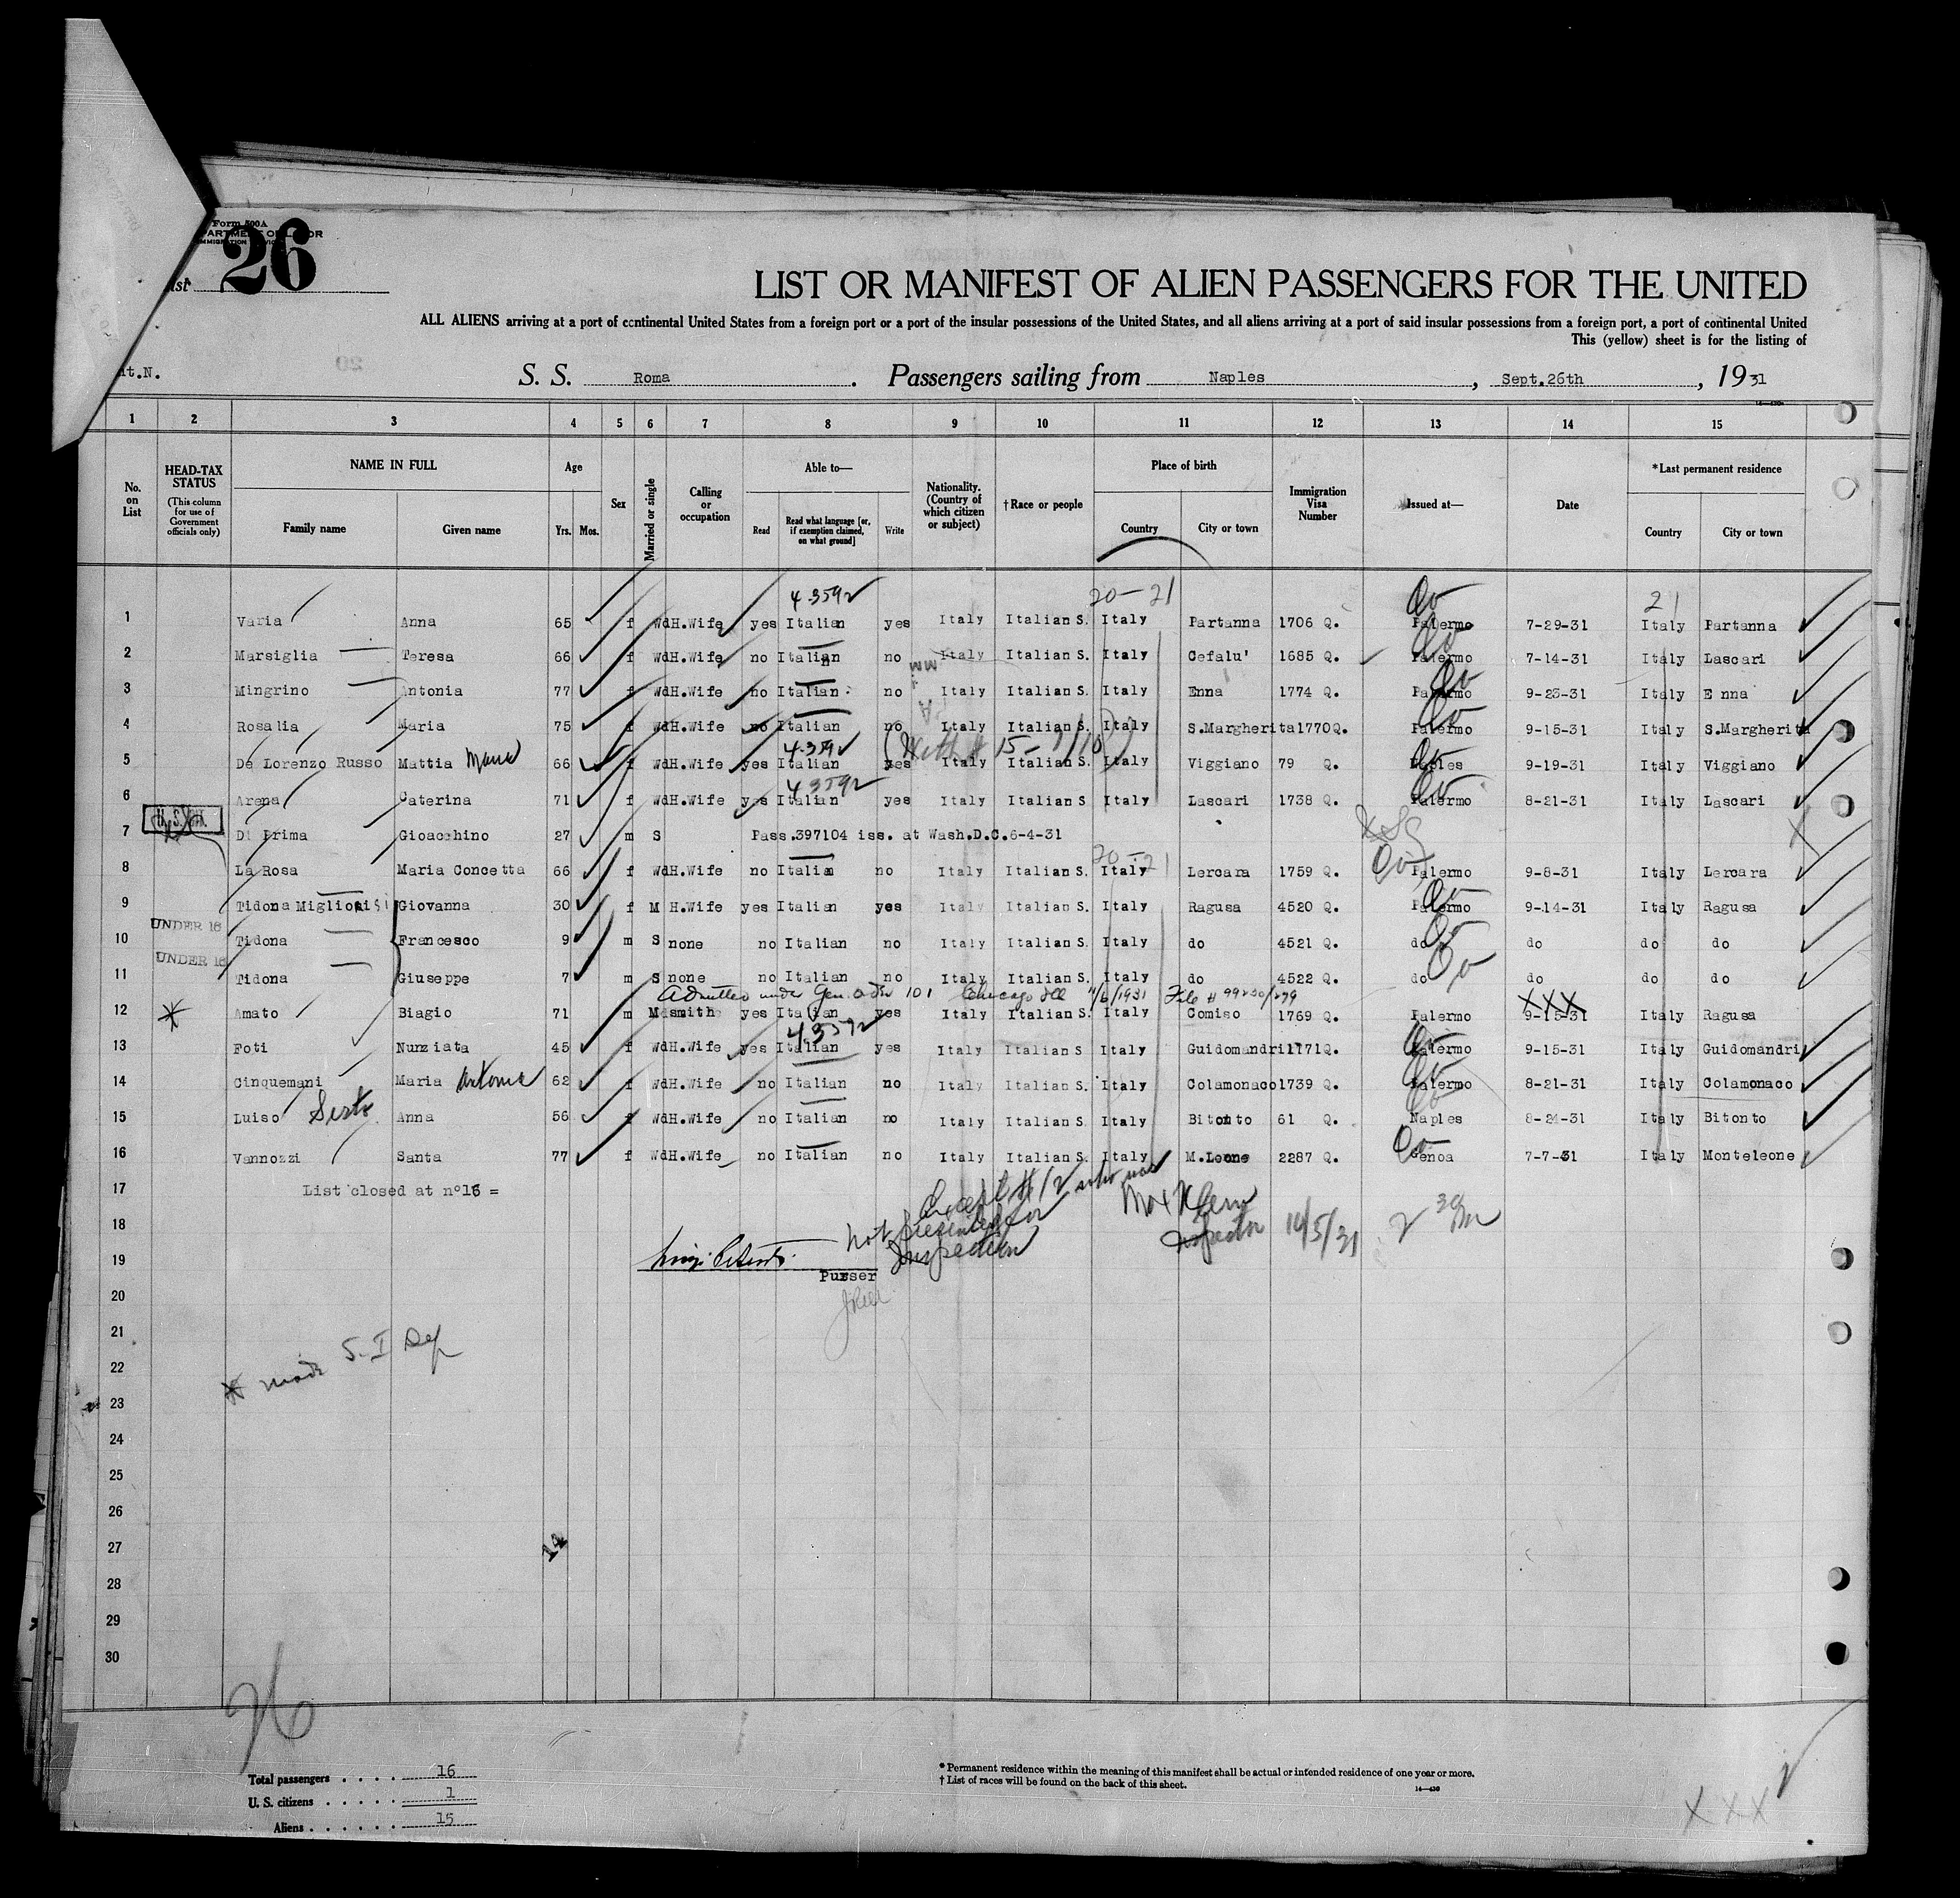 Form 500A
26
LIST OR MANIFEST OF ALIEN PASSENGERS FOR THE UNITED
ALL ALIENS arriving at a port of continental United States from a foreign port or a port of the insular possessions of the United States, and all aliens arriving at a port of said insular possessions from a foreign port, a port of continental United
This (yellow) sheet is for the listing of
S. S. Roma. Passengers sailing from Naples, Sept.26th, 1931
1 2 3 4 5 6 7 8 9 10 11 12 13 14 15
No. on List
HEAD-TAX STATUS (This column for use of Government officials only)
NAME IN FULL
Family name Given name
Age
Yrs. Mos.
Sex
Married or single
Calling or occupation
Able to—
Read Read what language [or, if exemption claimed, on what ground] Write
Nationality. (Country of which citizen or subject)
†Race or people
Place of birth
Country City or town
Immigration Visa Number
Issued at—
Date
*Last permanent residence
Country City or town
20-21 21
1 Varia Anna 65 f Wd H.Wife yes Italian yes Italy Italian S. Italy Partanna 1706 Q. Palermo 7-29-31 Italy Partanna
2 Marsiglia Teresa 66 f Wd H.Wife no Italian no Italy Italian S. Italy Cefalu' 1685 Q. Palermo 7-14-31 Italy Lascari
3 Mingrino Antonia 77 f Wd H.Wife no Italian no Italy Italian S. Italy Enna 1774 Q. Palermo 9-23-31 Italy E nna
4 Rosalia Maria 75 f Wd H.Wife no Italian no Italy Italian S. Italy S.Margherita 1770Q. Palermo 9-15-31 Italy S.Margherita
5 De Lorenzo Russo Mattia Maria 66 f Wd H.Wife yes Italian yes Italy Italian S. Italy Viggiano 79 Q. Naples 9-19-31 Italy Viggiano
6 Arena Caterina 71 f Wd H.Wife yes Italian yes Italy Italian S Italy Lascari 1738 Q. Palermo 8-21-31 Italy Lascari
7 Di Prima Gioacchino 27 m S Pass.397104 iss. at Wash.D.C.6-4-31
20-21
8 La Rosa Maria Concetta 66 f Wd H.Wife no Italian no Italy Italian S. Italy Lercara 1759 Q. Palermo 9-8-31 Italy Lercara
9 Tidona Migliorisi Giovanna 30 f M H.Wife yes Italian yes Italy Italian S. Italy Ragusa 4520 Q. Palermo 9-14-31 Italy Ragusa
UNDER 16
10 Tidona Francesco 9 m S none no Italian no Italy Italian S. Italy do 4521 Q. do do do do
UNDER 16
11 Tidona Giuseppe 7 m S none no Italian no Italy Italian S. Italy do 4522 Q. do do do do
Admitted under Gen. Order 101 Chicago Ill File # 99230/279
XXX
12 * Amato Biagio 71 m M smith yes Italian yes Italy Italian S. Italy Comiso 1769 Q. Palermo 9-15-31 Italy Ragusa
13 Foti Nunziata 45 f Wd H.Wife yes Italian yes Italy Italian S Italy Guidomandri 1171Q. Palermo 9-15-31 Italy Guidomandri
14 Cinquemani Maria Antonia 62 f Wd H.Wife no Italian no Italy Italian S. Italy Colamonaco 1739 Q. Palermo 8-21-31 Italy Colamonaco
15 Luiso Sisto Anna 56 f Wd H.Wife no Italian no Italy Italian S Italy Bitonto 61 Q. Naples 8-24-31 Italy Bitonto
16 Vannozzi Santa 77 f Wd H.Wife no Italian no Italy Italian S. Italy M.Leone 2287 Q. Genoa 7-7-31 Italy Monteleone
17 List closed at n°16 =
Except # 12 who was
not presented for
Inspection
Inspector 10/5/31
18
19
Purser
20
21
* made S. I
22
23
24
25
26
27
14
28
29
30
26
Total passengers . . . . 16
U. S. citizens . . . . . 1
Aliens . . . . . . 15
* Permanent residence within the meaning of this manifest shall be actual or intended residence of one year or more.
† List of races will be found on the back of this sheet.
XXX